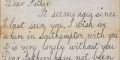 Dear Father
It seems ages since
I last seen you, I wish we
where in Southampton with you
it is very lonely without you